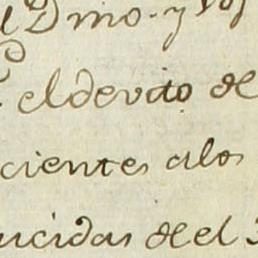 Dmo. y
el devoto de
cientes a los
ucidas de el